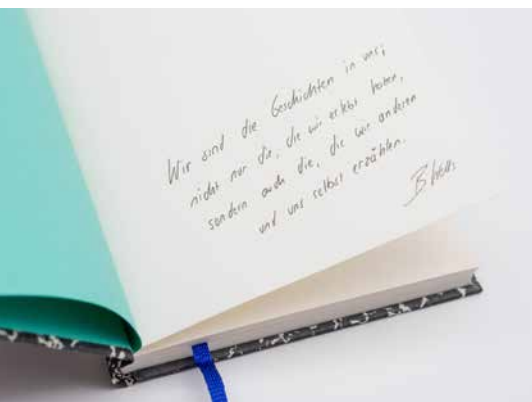 Wir sind die Geschichten in uns;
nicht nur die, die wir erlebt haben,
sondern auch die, die wir anderen
und uns selbst erzählen.
B. Wells